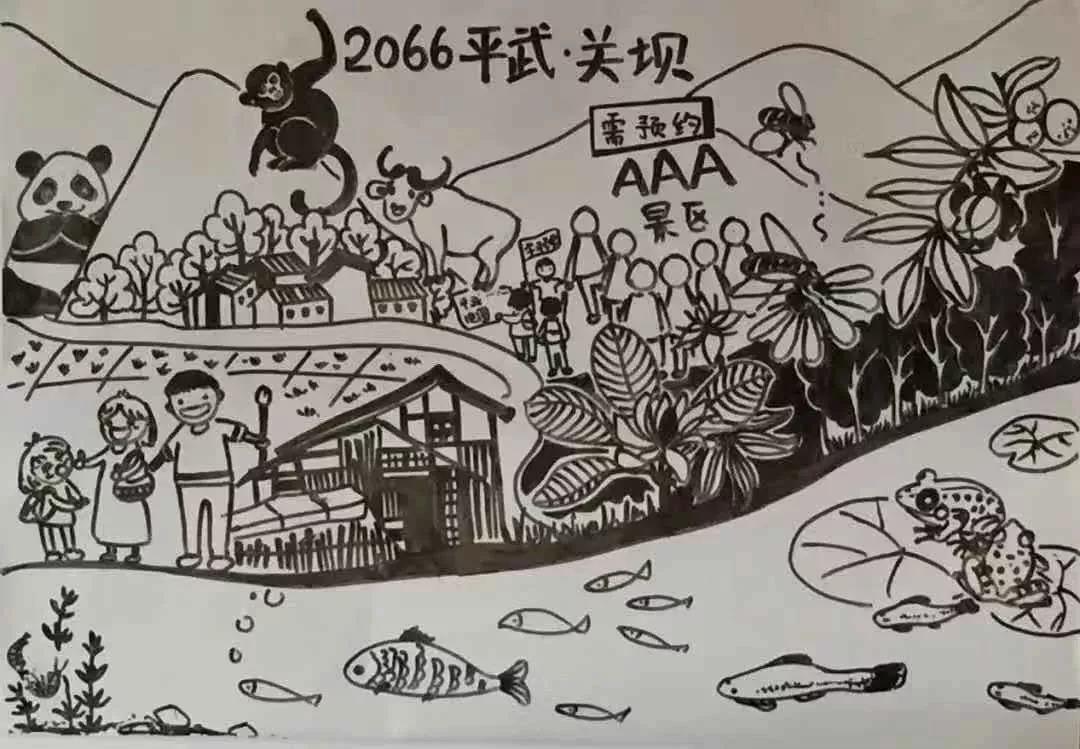 2066平武·关坝
需预约
AAA
景区